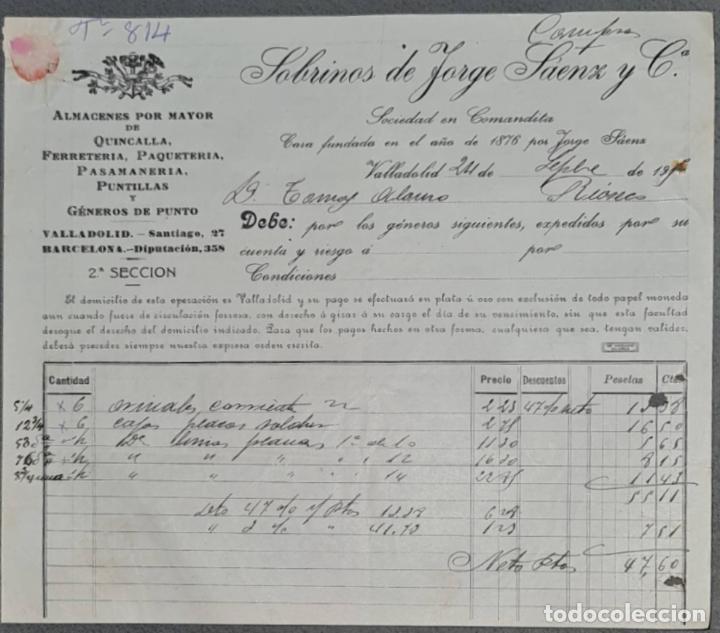 Tº 814
Compra
Sobrinos de Jorge Sáenz y Cª
Sociedad en Comandita
Casa fundada en el año de 1876 por Jorge Sáenz
Valladolid 24 de Sepbre de 19
ALMACENES POR MAYOR
DE
QUINCALLA,
FERRETERIA, PAQUETERIA,
PASAMANERIA,
PUNTILLAS
Y
GÉNEROS DE PUNTO
VALLADOLID.—Santiago, 27
BARCELONA.—Diputación, 358
2ª SECCION
D. Tomas Alamo
Debe: por los géneros siguientes, expedidos por su
cuenta y riesgo á por
Condiciones
El domicilio de esta operación es Valladolid y su pago se efectuará en plata ú oro con exclusión de todo papel moneda
aun cuando fuere de circulación forzosa, con derecho á girar á su cargo el día de su vencimiento, sin que esta facultad
derogue el derecho del domicilio indicado. Para que los pagos hechos en otra forma, cualquiera que sea, tengan validez,
deberá preceder siempre nuestra expresa orden escrita.
Cantidad Precio Descuentos Pesetas Cts
6 2 23 47 %
12 3/4 6 cajas placas 2 75 16 50
limas planas 1ª de 10 11 30 5 65
" " " " 12 16 30 8 15
" " " " 14 22 85 11 43
55 11
Dto 47 % s/ Ptas 13.38 6 28
" 3 % " 41.73 1 23 7 51
Neto Ptas 47,60
todocoleccion
todocoleccion.net